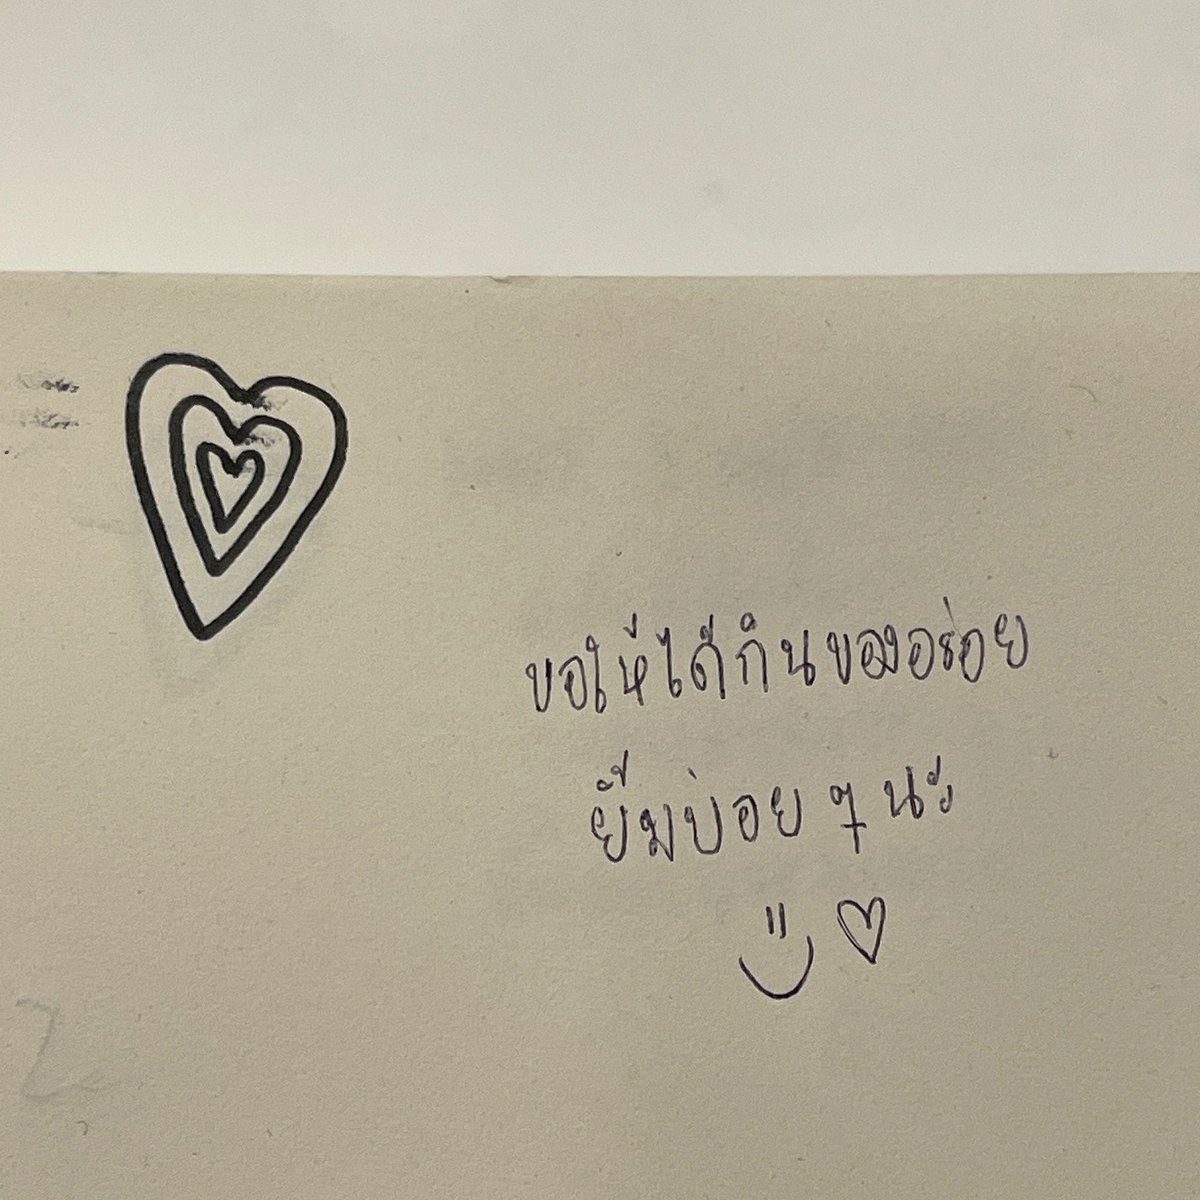 ขอให้ได้กินของอร่อย
ยิ้มบ่อย ๆ นะ